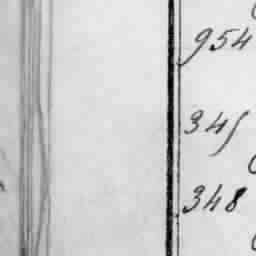 954
345
348